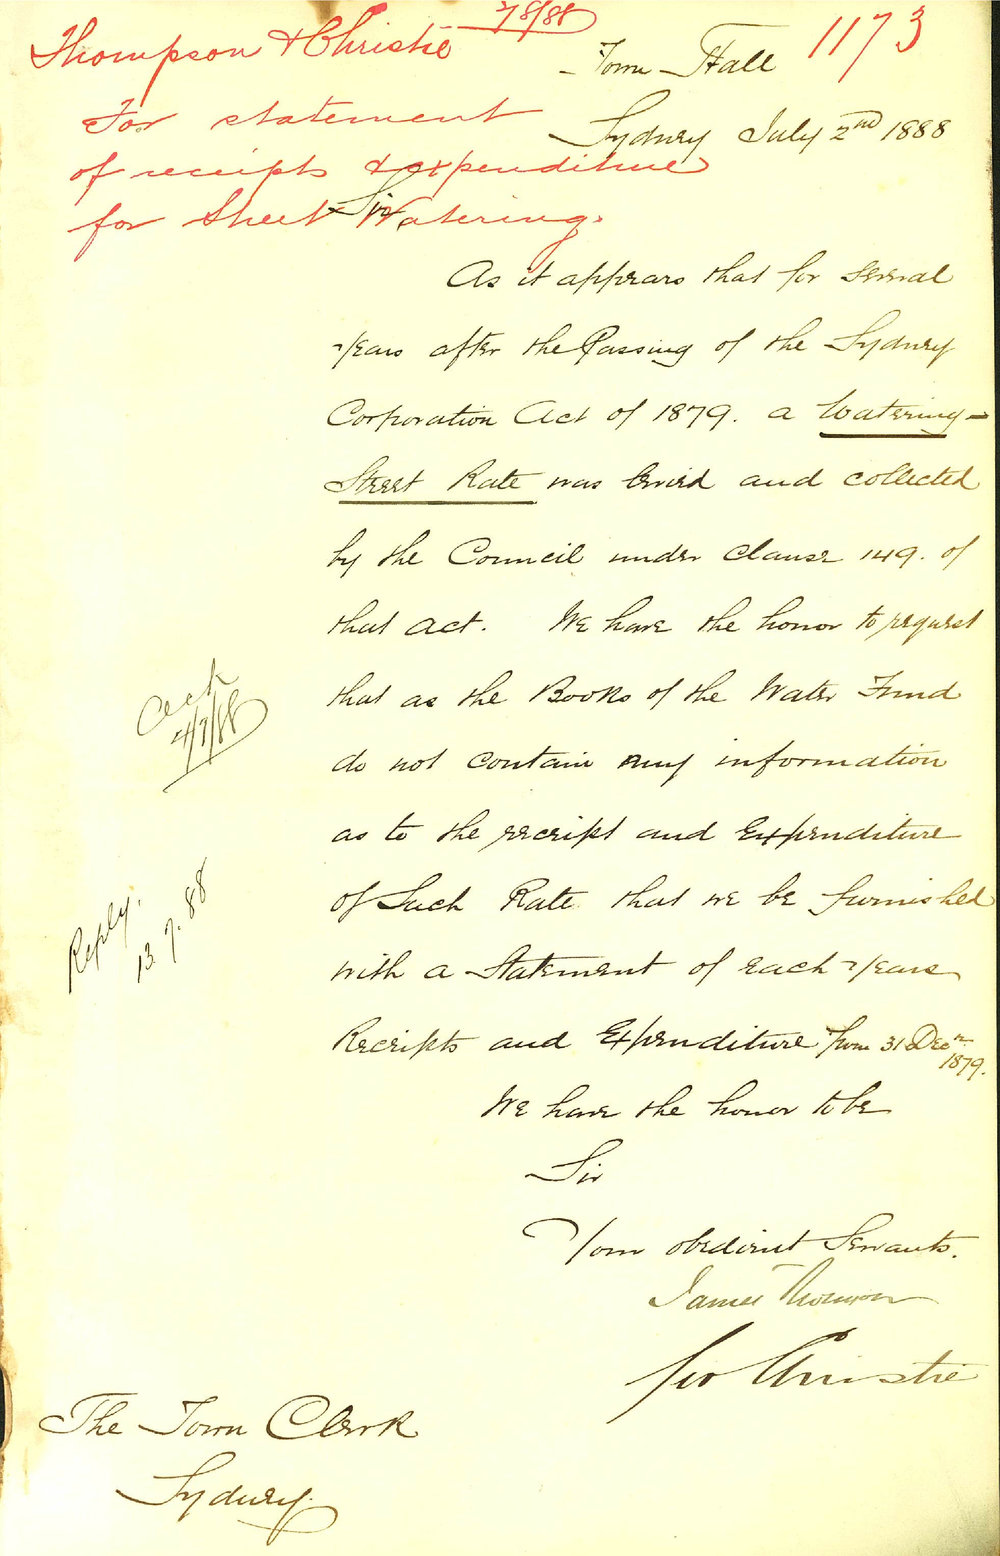 Thompson & Christie
7/8/88
1173
For statement
of receipts & expenditure
for Street Watering.
Town Hall
Sydney July 2nd 1888
Sir,
As it appears that for several
years after the Passing of the Sydney
Corporation Act of 1879. a Watering-
Street Rate was levied and collected
by the Council under Clause 149. of
that act. We have the honor to request
that as the Books of the Water Fund
do not contain any information
as to the receipt and Expenditure
of Such Rate that we be furnished
with a Statement of each years
Receipts and Expenditure from 31 Decr
1879.
We have the honor to be
Sir
Your obedient Servants.
James Thomson
Geo Christie
The Town Clerk
Sydney.
Ack
4/7/88
Reply.
13.7.88